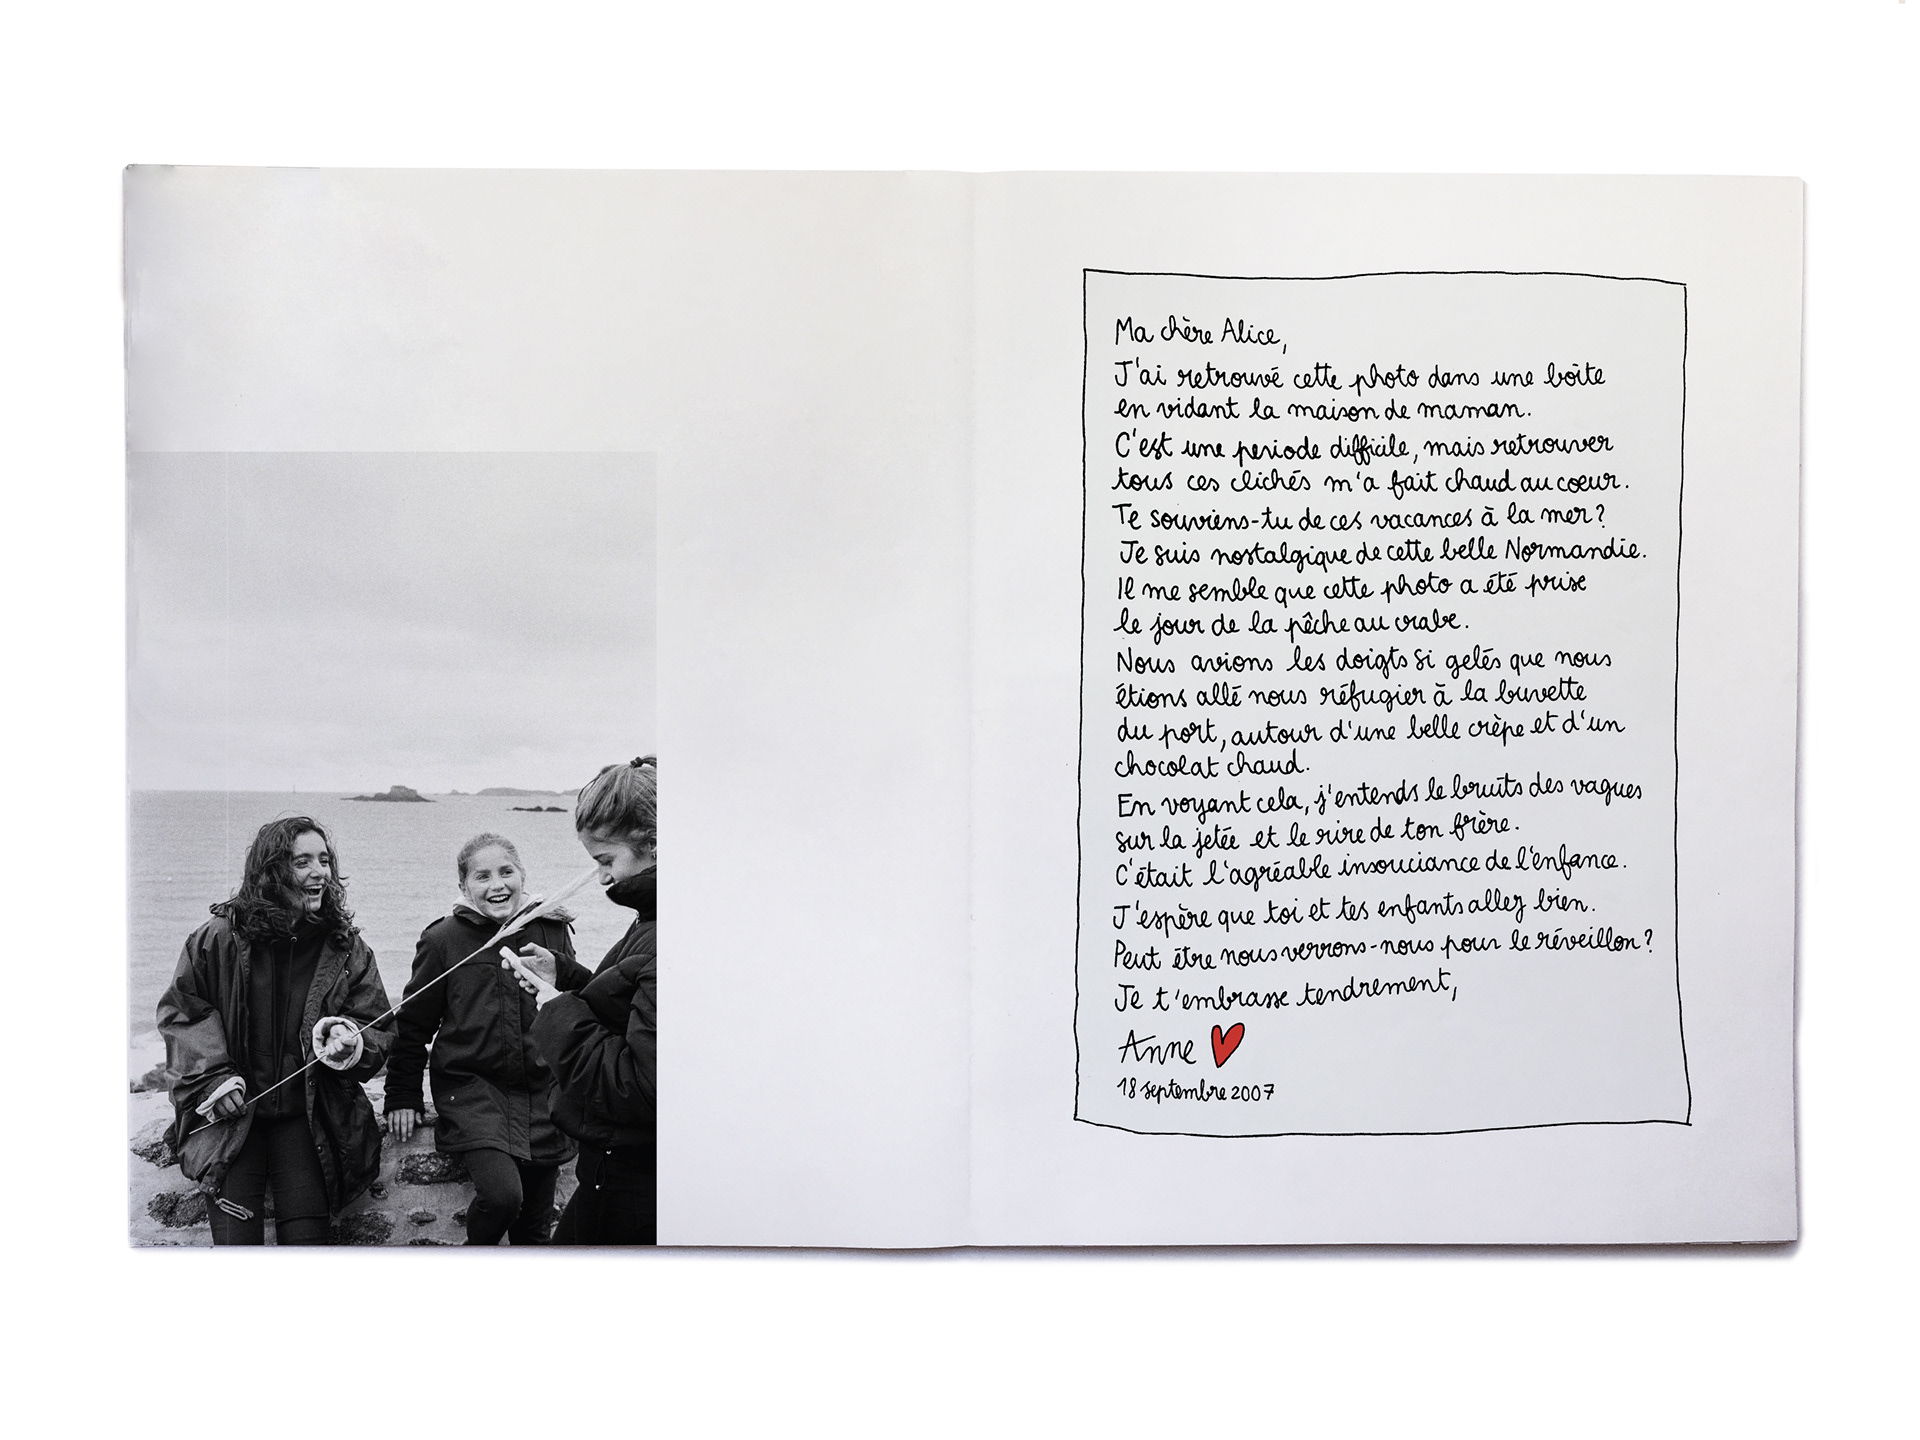 Ma chère Alice,
J'ai retrouvé cette photo dans une boîte
en vidant la maison de maman.
C'est une periode difficile, mais retrouver
tous ces clichés m'a fait chaud au coeur.
Te souviens-tu de ces vacances à la mer?
Je suis nostalgique de cette belle Normandie.
Il me semble que cette photo a été prise
le jour de la pêche au crabe.
Nous avions les doigts si gelés que nous
étions allé nous réfugier à la buvette
du port, autour d'une belle crèpe et d'un
chocolat chaud.
En voyant cela, j'entends le bruits des vagues
sur la jetée et le rire de ton frère.
C'était l'agréable insouciance de l'enfance.
J'espère que toi et tes enfants allez bien.
Peut être nous verrons-nous pour le réveillon?
Je t'embrasse tendrement,
Anne
18 septembre 2007